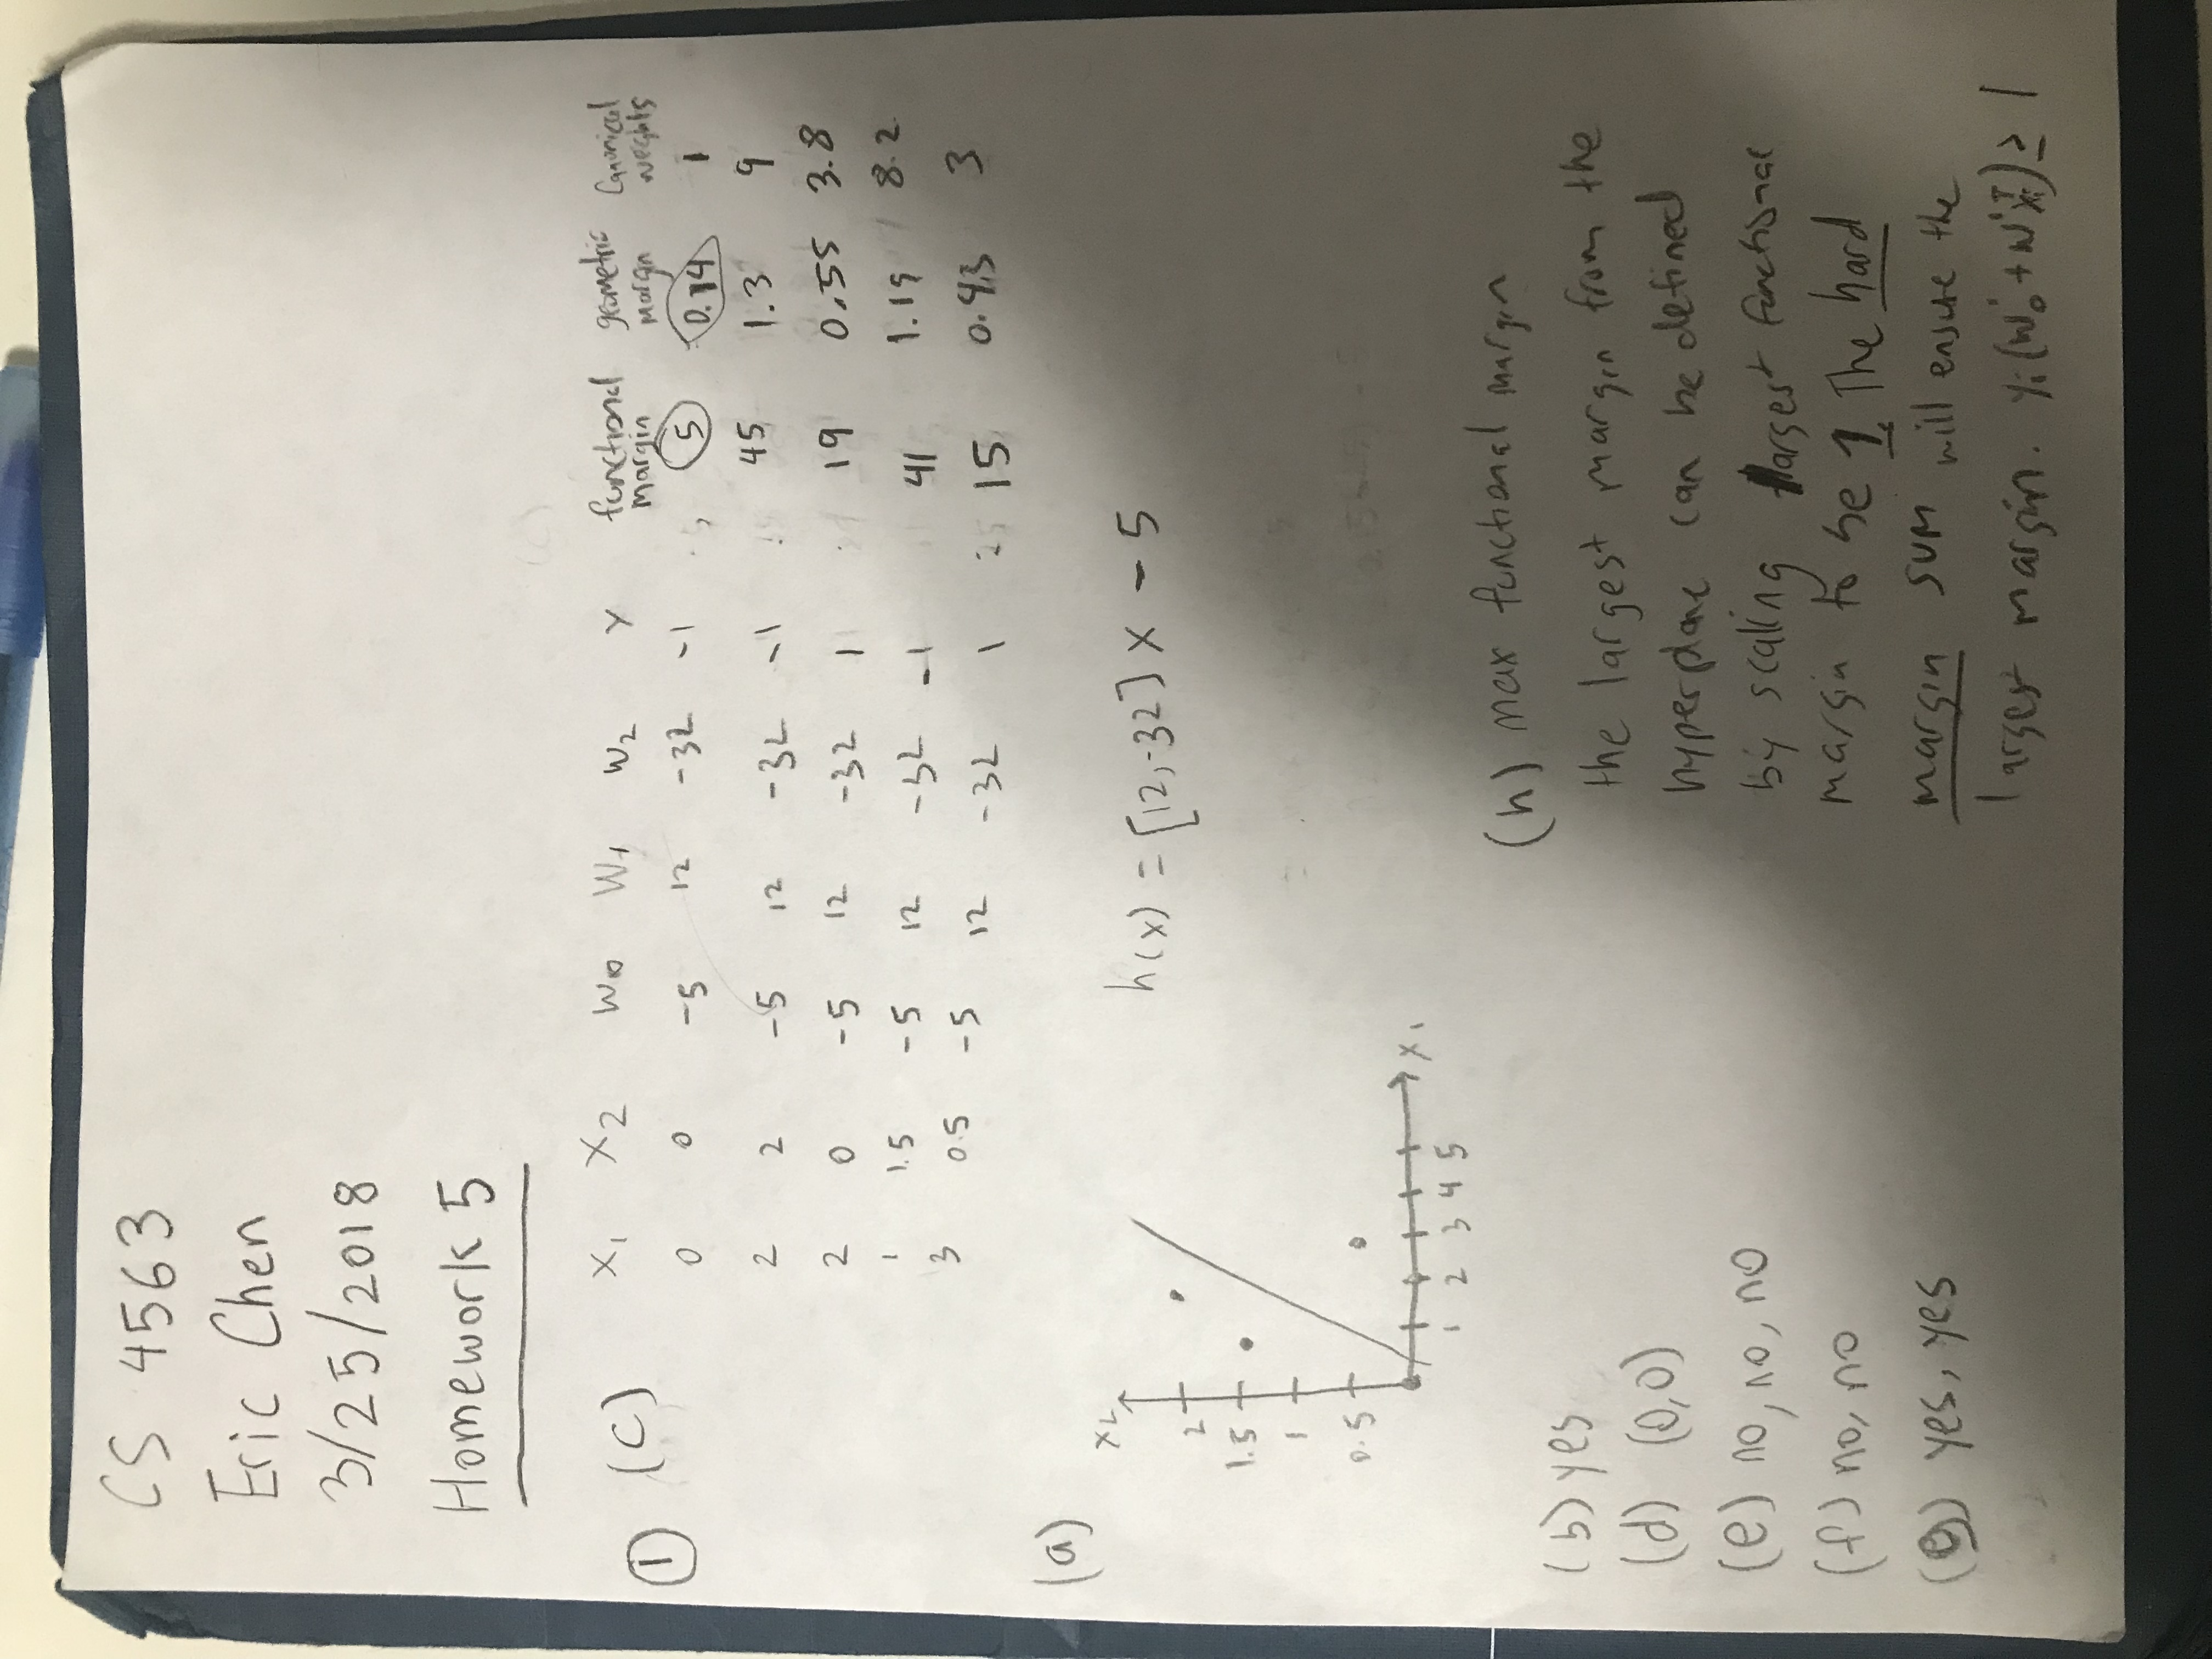 CS 4563
Eric Chen
3/25/2018
Homework 5
① (c) X₁ X₂ W₀ W₁ W₂ Y functional margin geometric margin Canonical weights
0 0 -5 12 -32 -1 5 0.14 1
2 2 -5 12 -32 -1 45 1.3 9
2 0 -5 12 -32 1 19 0.55 3.8
1 1.5 -5 12 -32 -1 41 1.19 8.2
3 0.5 -5 12 -32 1 15 0.43 3
(a)
X₂
2
1.5
1
0.5
1 2 3 4 5
X₁
h(x) = [12,-32] X - 5
(b) yes
(d) (0,0)
(e) no, no, no
(f) no, no
(g) yes, yes
(h) max functional margin
the largest margin from the
hyperplane can be defined
by scaling largest functional
margin to be 1. The hard
margin SUM will ensure the
largest margin. yᵢ(w₀' + w'ᵀxᵢ) ≥ 1